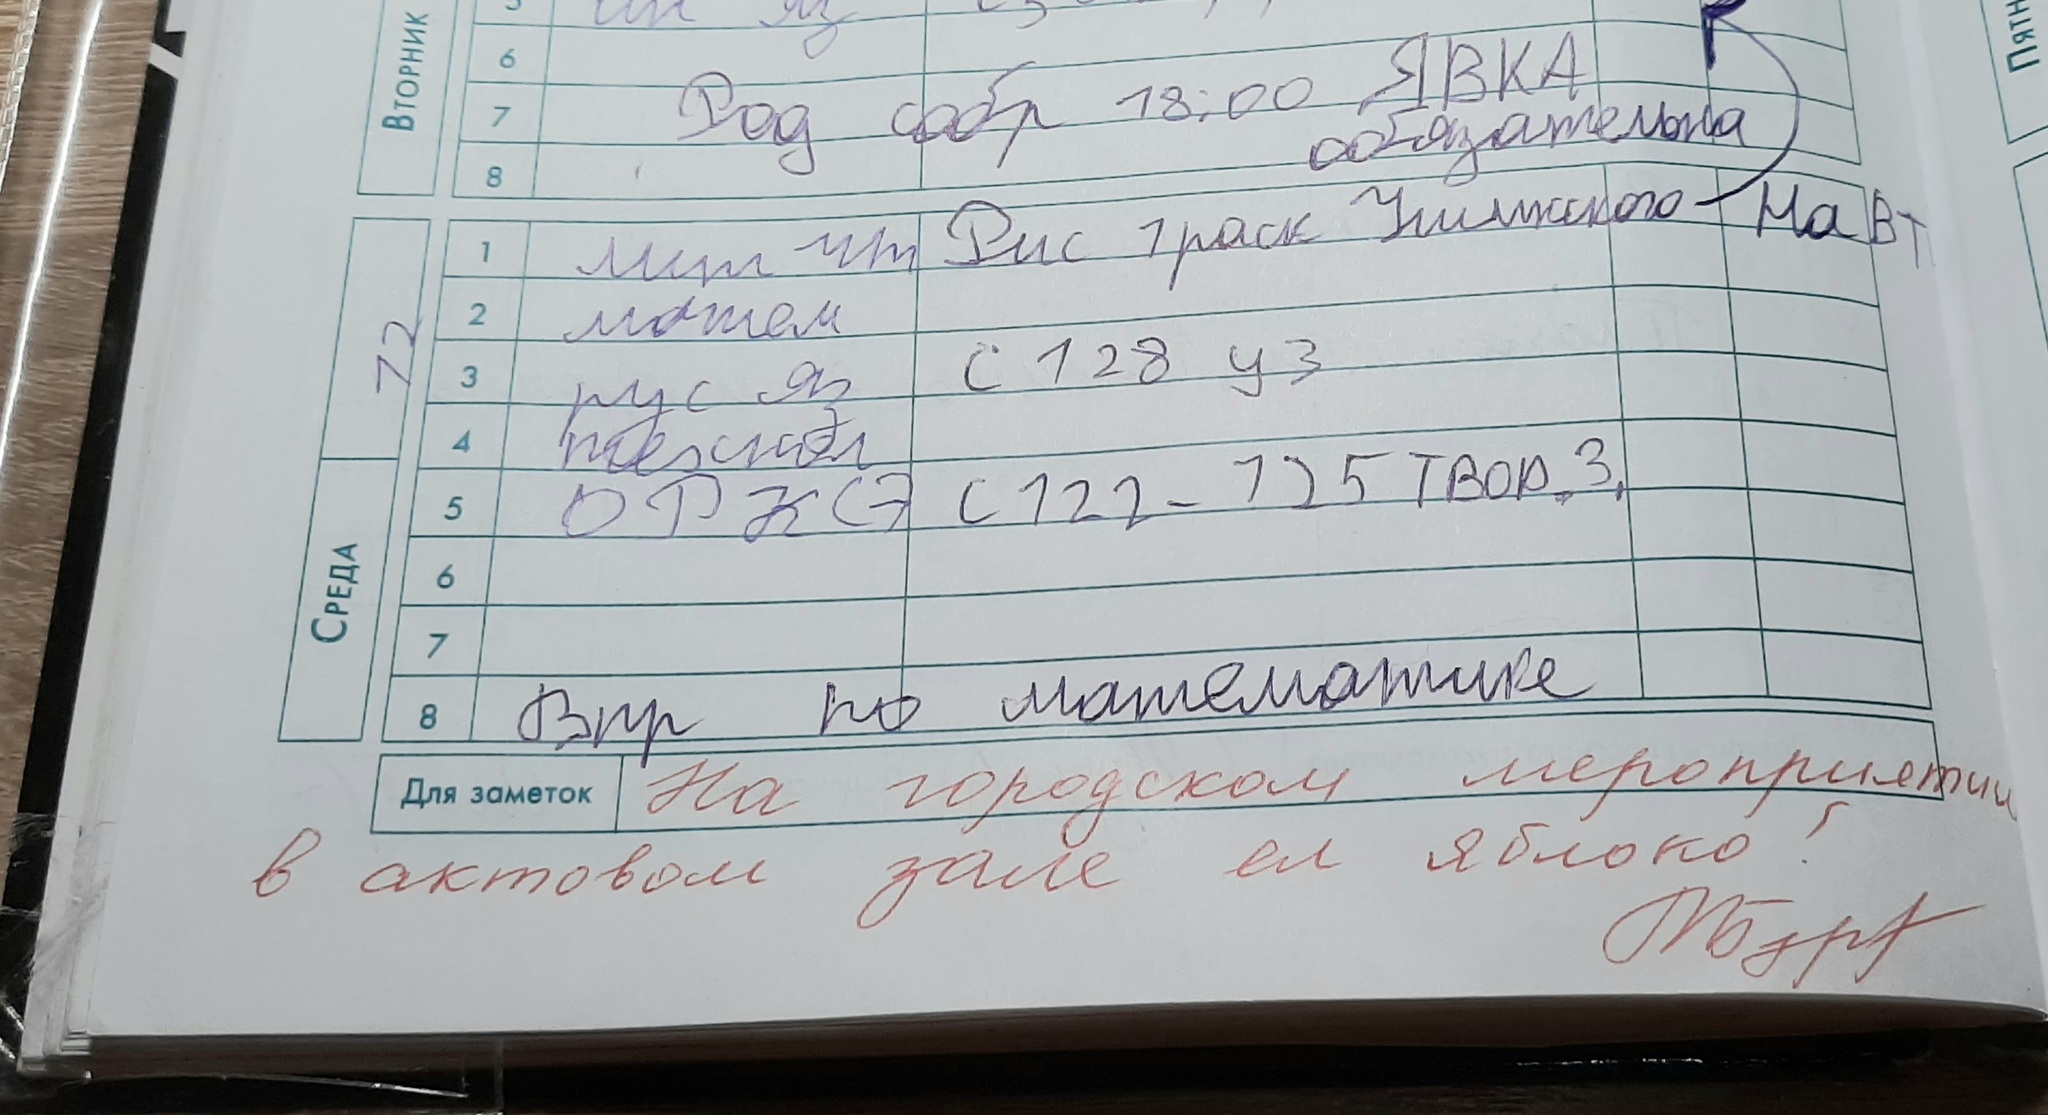 ВТОРНИК
5 ин яз
6
7 Род собр 18:00 ЯВКА
обязательна
8
СРЕДА 12
1 лит чт Рис траск Ушинского - На Вт
2 матем
3 рус яз С 128 у 3
4 технол
5 ОРКСЭ С 122 - 125 ТВОР. З.
6
7
8 Впр по математике
Для заметок На городском мероприятии
в актовом зале ел яблоко!
Пятн